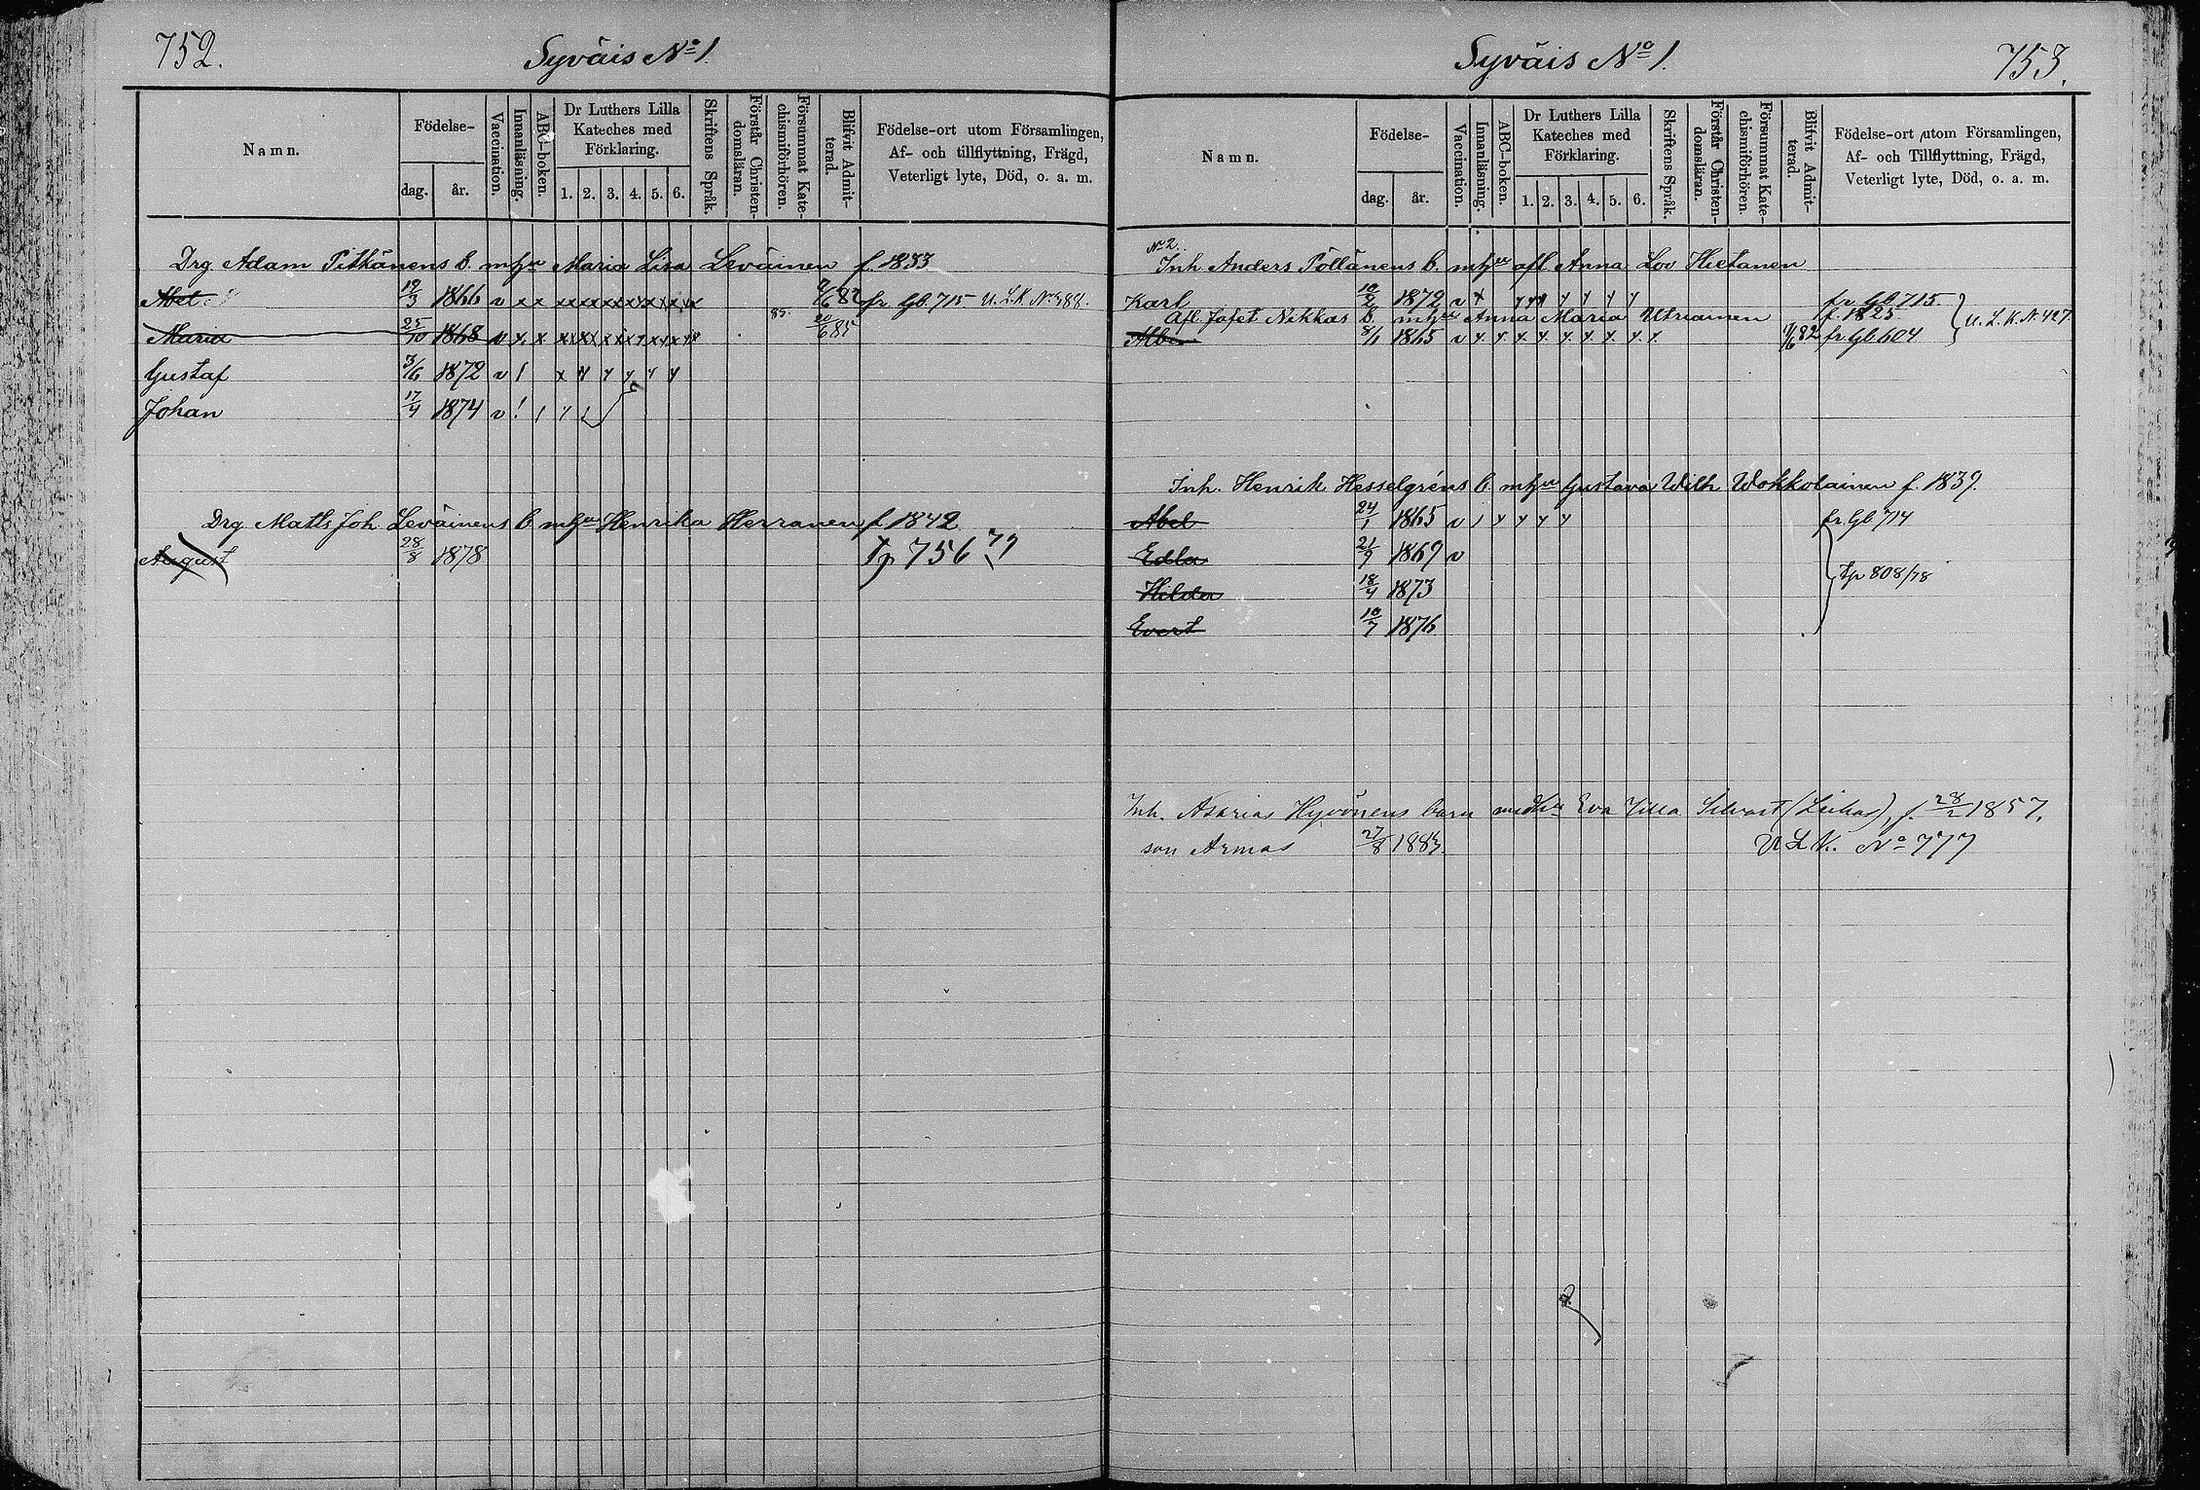 752.
Syväis No 1.
Namn.
Födelse-
dag.
år.
Vaccination.
Innanläsning.
ABC-boken.
Dr Luthers Lilla
Kateches med
Förklaring.
1. 2. 3. 4. 5. 6.
Skriftens Språk.
Förstår Christen-
domsläran.
Försummat Kate-
chismiförhören.
Blifvit Admit-
terad.
Födelse-ort utom Församlingen,
Af- och tillflyttning, Frägd,
Veterligt lyte, Död, o. a. m.
Drg. Adam Pitkänens b. mhu Maria Lisa Leväinen f. 1833
Abel 19/3 1866 v x x x x x x x x x x x x x x 82 fr. Gb. 715 U. L. K. No 388.
Maria 25/10 1868 v x x x x x x x x x x x x x 85. 20/6 85
Gustaf 3/6 1872 v ! x x y y y y
Johan 17/4 1874 v ! / y
Drg. Matts Joh. Leväinens b. mhu Henrika Herranen f. 1842
August 28/8 1878 Tp 756 79
Syväis No 1.
753.
Namn.
Födelse-
dag.
år.
Vaccination.
Innanläsning.
ABC-boken.
Dr Luthers Lilla
Kateches med
Förklaring.
1. 2. 3. 4. 5. 6.
Skriftens Språk.
Förstår Christen-
domsläran.
Försummat Kate-
chismiförhören.
Blifvit Admit-
terad.
Födelse-ort utom Församlingen,
Af- och Tillflyttning, Frägd,
Veterligt lyte, Död, o. a. m.
No 2.
Inh. Anders Pöllänens b. mhu afl. Anna Lov. Hietanen
Karl 10/2 1872 v x y y y y y y y fr. Gb. 715.
Afl. Jafet Nikkas b. mhu Anna Maria Utriainen f. 1825
8/1 1865 v y y y y y y y y y 82 fr. Gb. 604 U. L. K. N. 427
Inh. Henrik Hesselgréns b. mhu Gustava Wilh. Wokkolainen f. 1839.
Abel 24/1 1865 v / y y y y fr Gb. 714
Edla 21/9 1869 v
Hilda 18/4 1873 Tp 808/78
Evert 10/7 1876
Inh. Asarias Hyvönens barn med hu Eva Ulla f. 28/2 1857.
son Armas 27/8 1883. U L K. No 777